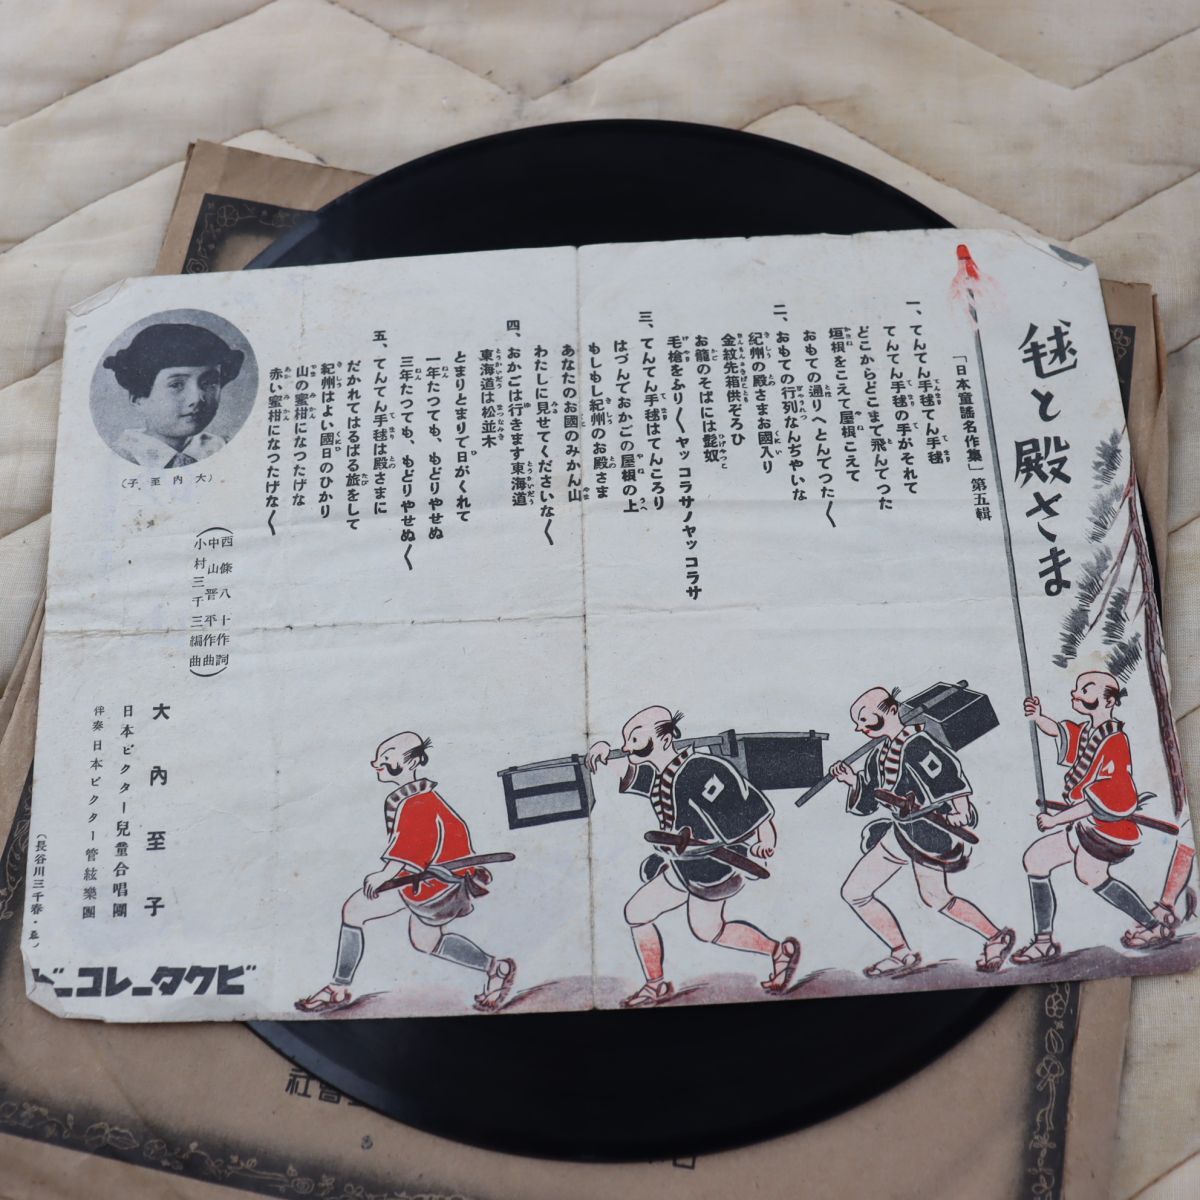 毬と殿さま
「日本童謠名作集」第五輯
一、てんてん手毬てん手毬
てんてん手毬の手がそれて
どこからどこまで飛んでつた
垣根をこえて屋根こえて
おもての通りへとんてつた〱
二、おもての行列なんぢやいな
紀州の殿さまお國入り
金紋先箱供ぞろひ
お籠のそばには髭奴
毛槍をふり〱ヤッコラサノヤッコラサ
三、てんてん手毬はてんころり
はづんでおかごの屋根の上
もしもし紀州のお殿さま
あなたのお國のみかん山
わたしに見せてくださいな〱
四、おかごは行きます東海道
東海道は松並木
とまりとまりて日がくれて
一年たつても、もどりやせぬ
三年たつても、もどりやせぬ〱
五、てんてん手毬は殿さまに
だかれてはるばる旅をして
紀州はよい國日のひかり
山の蜜柑になつたげな
赤い蜜柑になつたげな〱
(大内至子)
(西條八十作詞
中山晋平作曲
小村三千三編曲)
大內至子
日本ビクター兒童合唱團
伴奏日本ビクター管絃樂團
(長谷川三千春・畫)
ビクターレコード